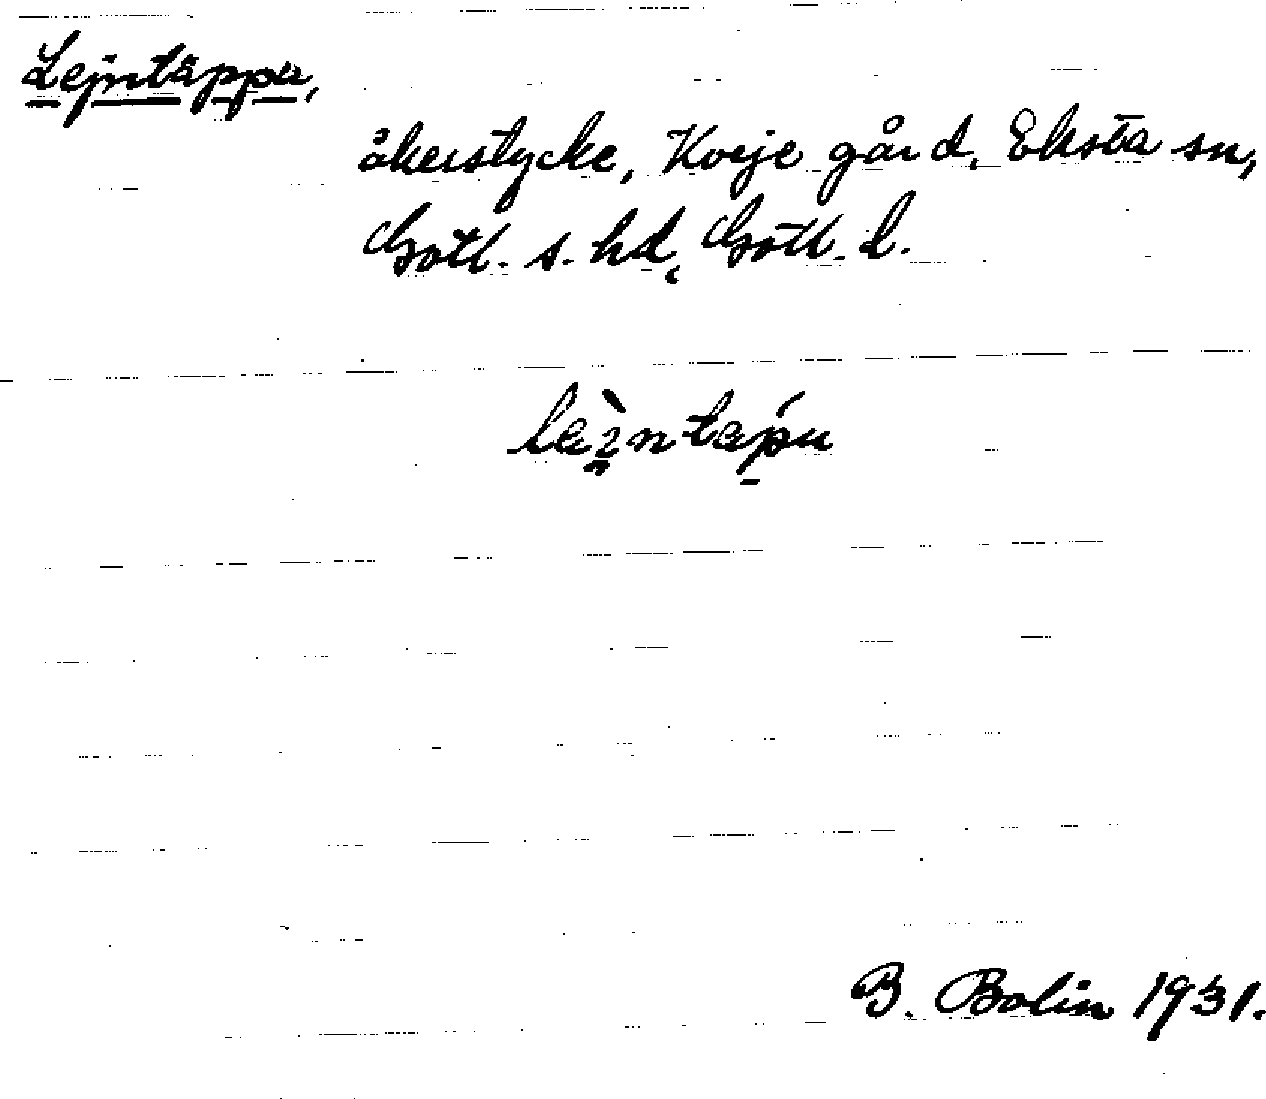 Lejntäppu,
åkerstycke, Kvije gård, Eksta sn,
Gotl. s. hd, Gotl. l.
B. Bolin 1931.